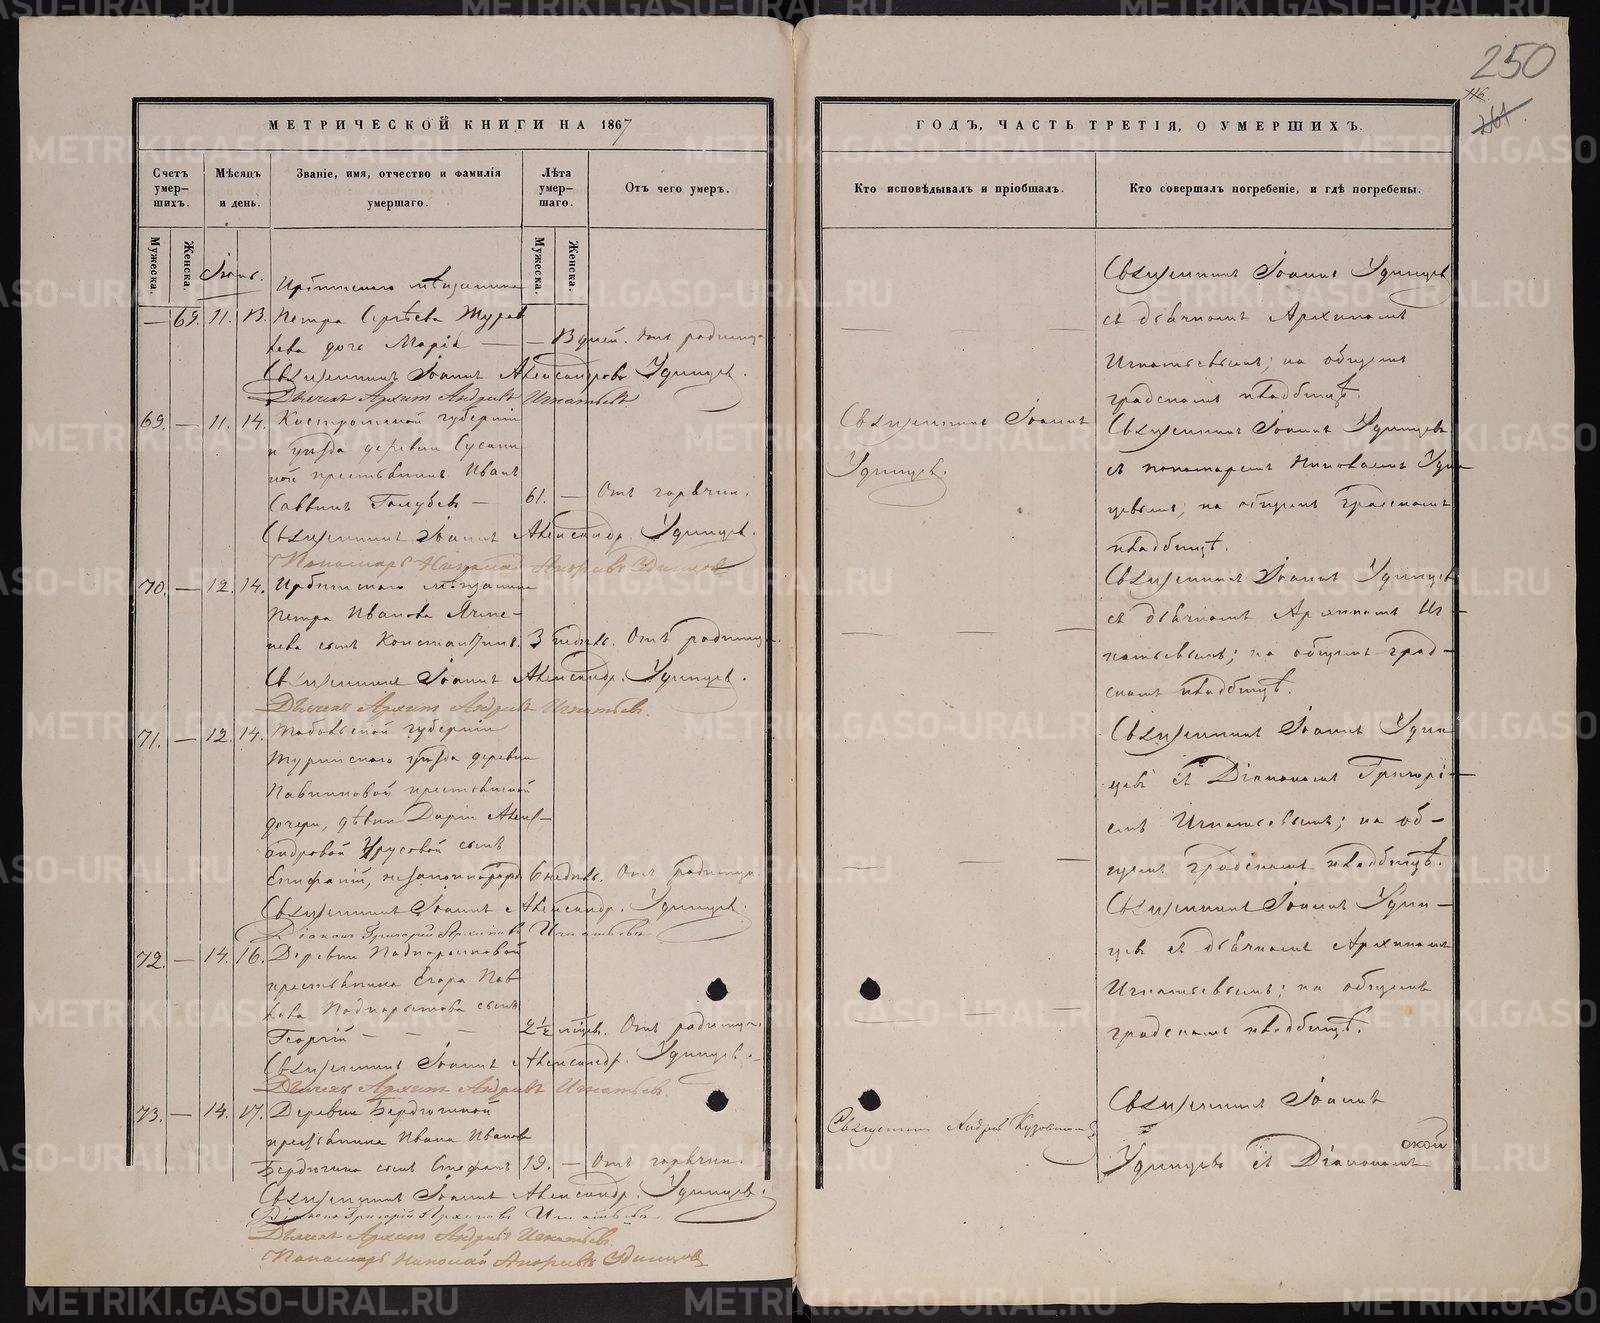 250
116
261
МЕТРИЧЕСКОЙ КНИГИ НА 1867
Счетъ умер-
шихъ.
Мѣсяцъ
и день.
Званіе, имя, отчество и фамилія
умершаго.
Лѣта
умер-
шаго.
Отъ чего умеръ.
Мужеска.
Женска.
Мужеска.
Женска.
Ирбитскаго мѣщанина
— 69. 11. 13. Петра Сергѣева Журав
лева дочь Марія — — 13 дней. Отъ родимца
Священникъ Іоаннъ Александровъ Удинцев.
Дьячекъ Архип Андреевъ Игнатьевъ
69. — 11. 14. Костромской губерніи
и уѣзда деревни Сусани
ной крестьянинъ Иванъ
Саввинъ Голубевъ — 61. — Отъ горячки.
Священникъ Іоаннъ Александр. Удинцев.
Пономарь Николай Андреевъ Удинцов
70. — 12. 14. Ирбитскаго мѣщанина
Петра Иванова Ячме-
нева сынъ Константинъ. 3 недѣль. Отъ родимца.
Священникъ Іоаннъ Александр. Удинцев.
Дьячекъ Архип Андреевъ Игнатьев.
71. — 12. 14. Тобольской губерніи
Туринскаго уѣзда деревни
крестьянской
дочери, дѣвки Даріи Алек-
сандровой Урусовой сынъ
Епифаній, незаконнорожд. 6 недѣль. Отъ родимца.
Священникъ Іоаннъ Александр. Удинцев.
Діаконъ Григорій Архиповъ Игнатьевъ
72. — 14. 16. Деревни Подкорытовой
крестьянина Егора Пав
лова Подкорытова сынъ
Георгій — — — 2½ мѣсяц. Отъ родимца.
Священникъ Іоаннъ Александр. Удинцев.
Дьячекъ Архип Андреевъ Игнатьев
73. — 14. 17. Деревни Бердюгиной
крестьянина Ивана Иванова
Бердюгина сынъ Стефанъ 19. — Отъ горячки.
Священникъ Іоаннъ Александр. Удинцев.
Діаконъ Григорій Архиповъ Игнатьевъ
Дьячекъ Архип Андреевъ Игнатьев.
Пономарь Николай Андреевъ Удинцов
ГОДЪ, ЧАСТЬ ТРЕТІЯ, О УМЕРШИХЪ.
Кто исповѣдывалъ и пріобщалъ.
Кто совершалъ погребеніе, и гдѣ погребены.
Священникъ Іоаннъ Удинцевъ
съ дьячкомъ Архипомъ
Игнатьевымъ; на общемъ
градскомъ кладбищѣ.
Священникъ Іоаннъ
Удинцев.
Священникъ Іоаннъ Удинцевъ
съ пономаремъ Николаемъ Удин
цевымъ, на общемъ градскомъ
кладбищѣ.
Священникъ Іоаннъ Удинцевъ
съ дьячкомъ Архипомъ Иг-
натьевымъ; на общемъ град-
скомъ кладбищѣ.
Священникъ Іоаннъ Удин
цевъ съ Діакономъ Григорі-
емъ Игнатьевымъ; на об-
щемъ градскомъ кладбищѣ.
Священникъ Іоаннъ Удин-
цевъ съ дьячкомъ Архипомъ
Игнатьевымъ; на общемъ
градскомъ кладбищѣ.
Священникъ Андрей
Священникъ Іоаннъ
Удинцевъ съ Діакономъ
METRIKI.GASO-URAL.RU